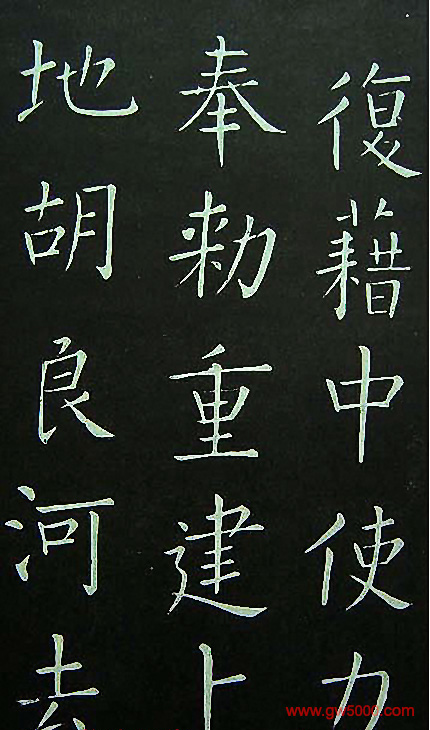 復藉中使力
奉勑重建
地胡良河去
www.gw5000.com